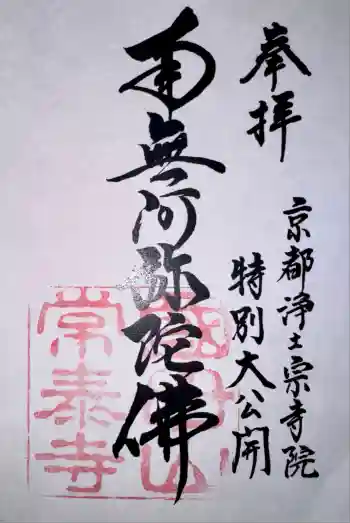 奉拝
京都浄土宗寺院
特別大公開
南無阿弥陀佛
常泰寺